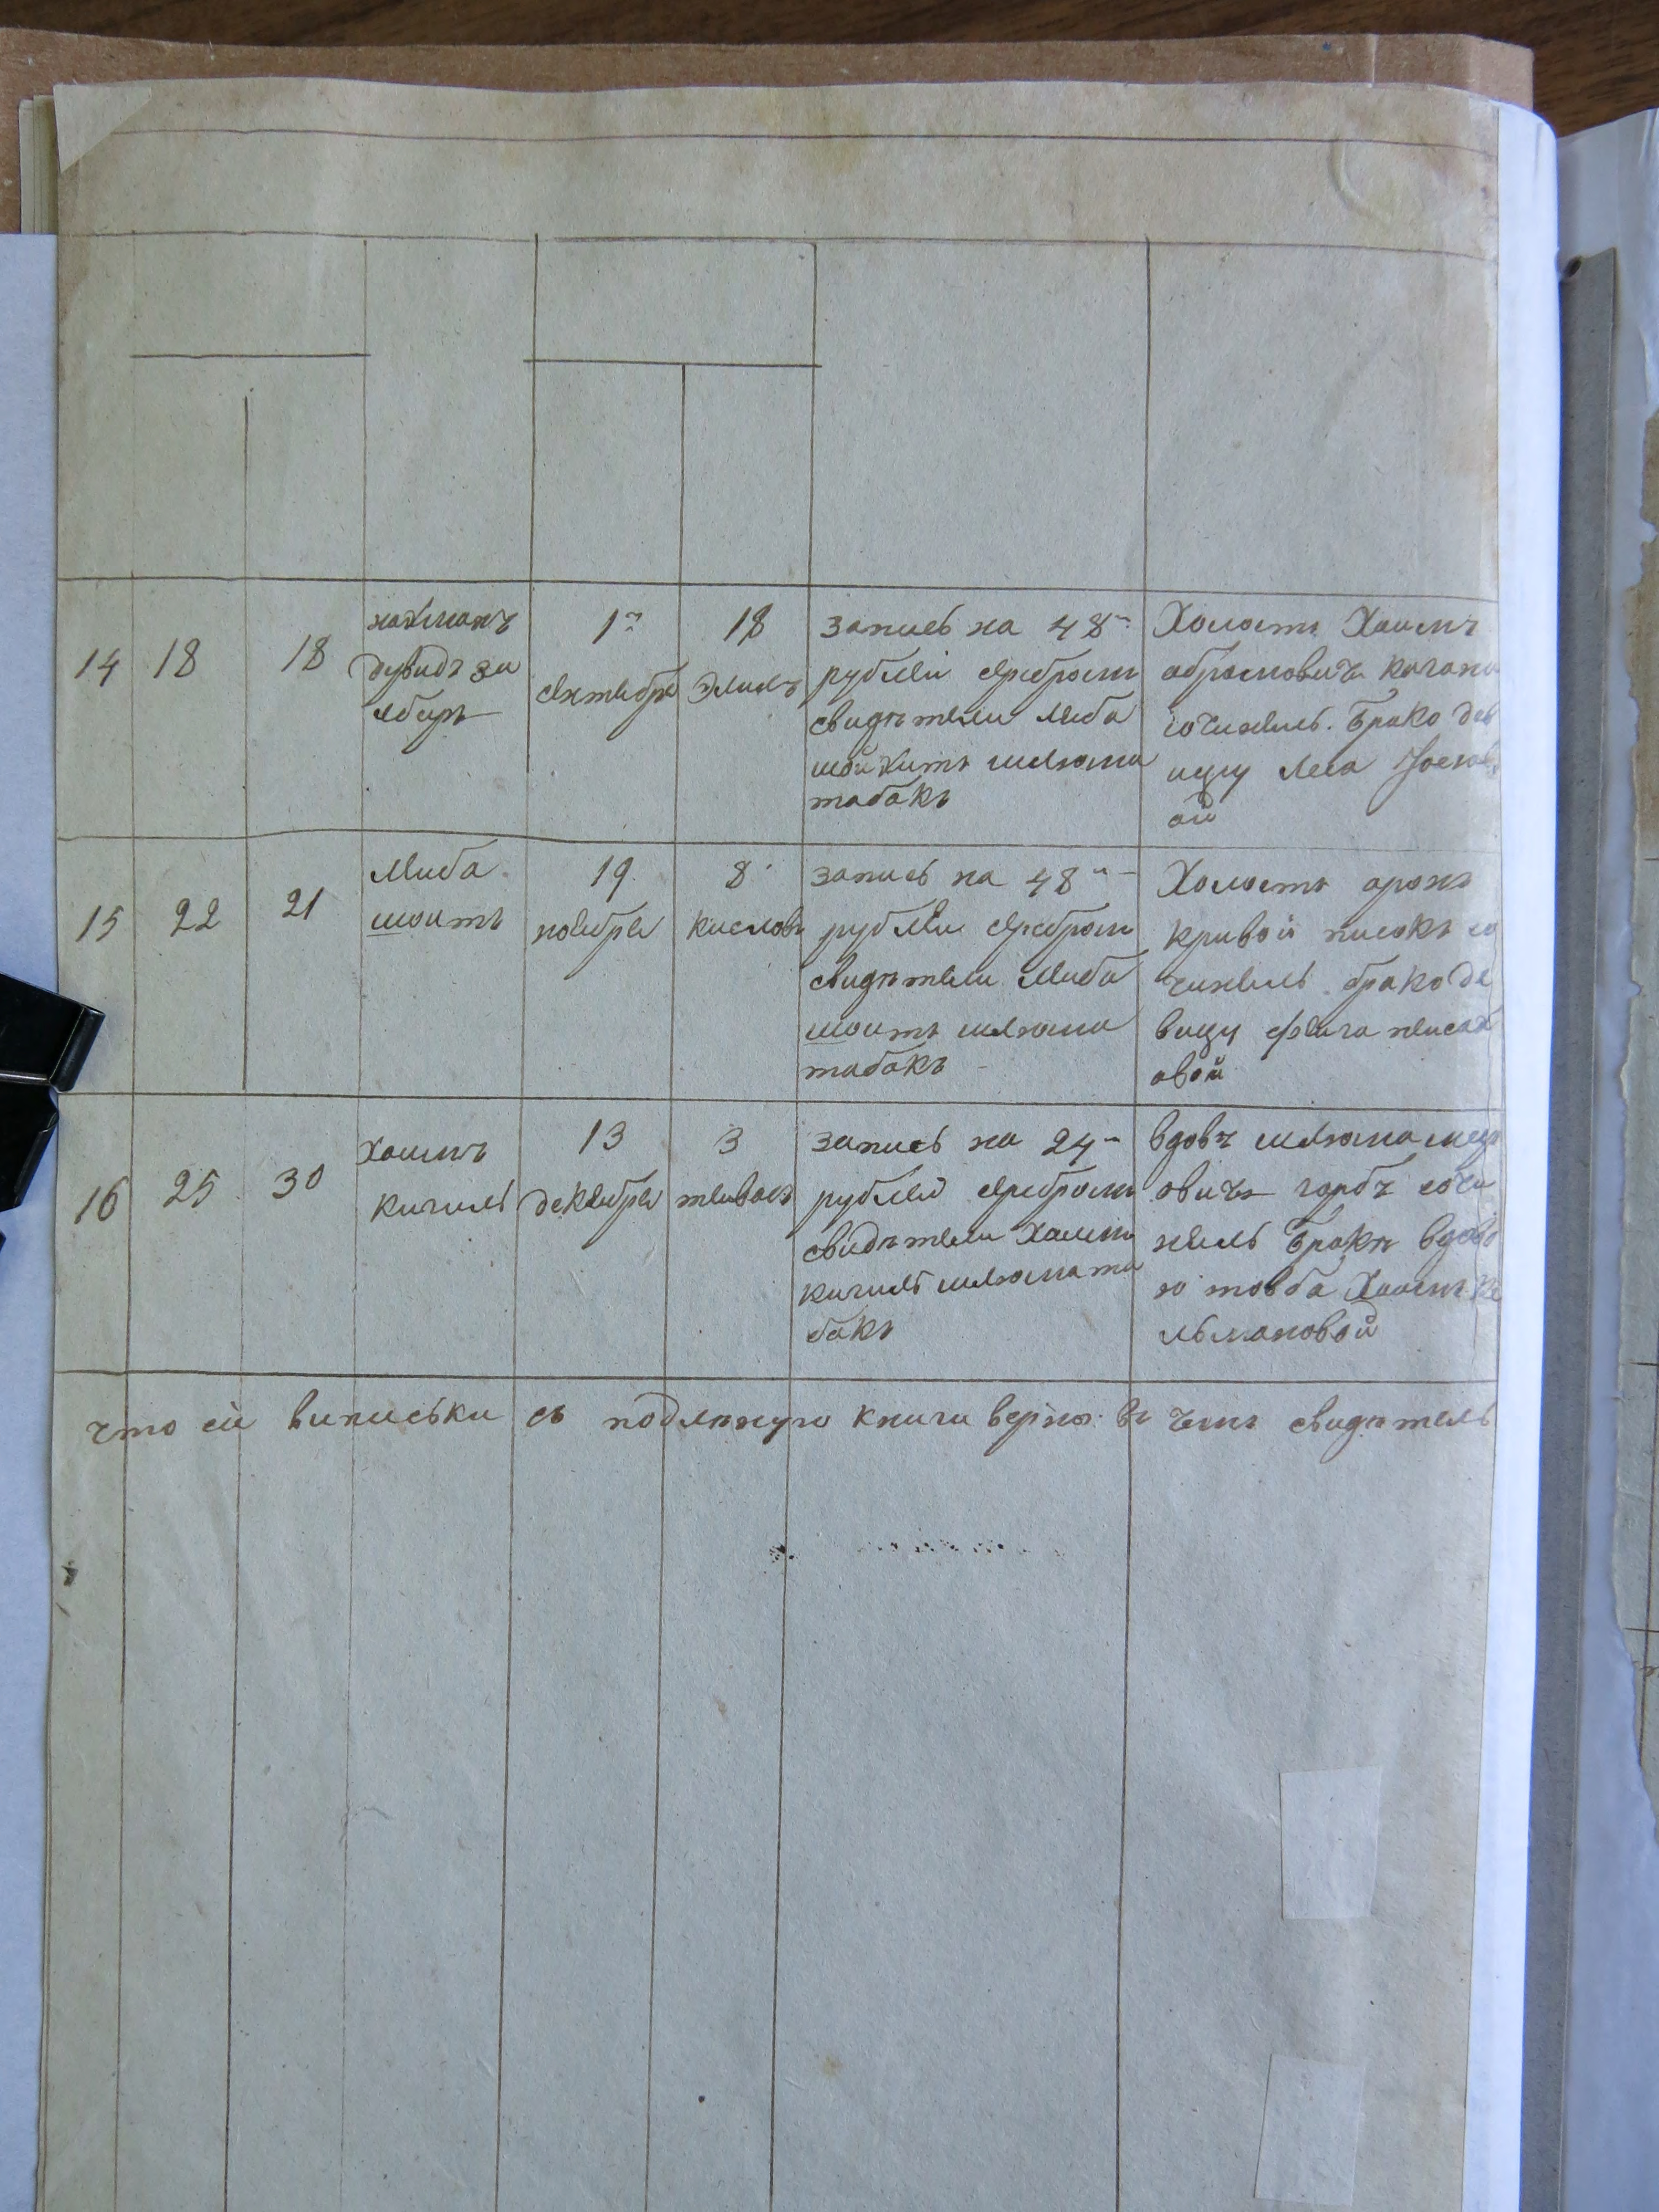 14 18 18
нахманъ
дувидъ за
1го
сентября
18
Элилъ
запись на 48м
рублей серебром
свидѣтели лейба
шойхитъ шлюма
табакъ
Холостъ Хаимъ
абрамовичъ кагано
сочинель. Брако дев
ицу леа
ой
15 22 21
лейба
шоитъ
19
ноября
8
кисловъ
запись на 48м
рублей серебром
свидѣтели лейба
шоитъ шлюма
табакъ
Холостъ аронъ
кривой писакъ со
чинель брако де
вицу фейга
овой
16 25 30
Хаимъ
кигиль
13
декября
3
тейвась
запись на 24м
рублей серебром
свидѣтели Хаимъ
кигиль шлюма та
бакъ
вдовъ шлюма
овичъ горбъ сочи
нель Бракъ вдово
ю товба Хаимъ ке
льмановой
что сіи виписьки съ подленную книги верно въ чемъ свидѣтель